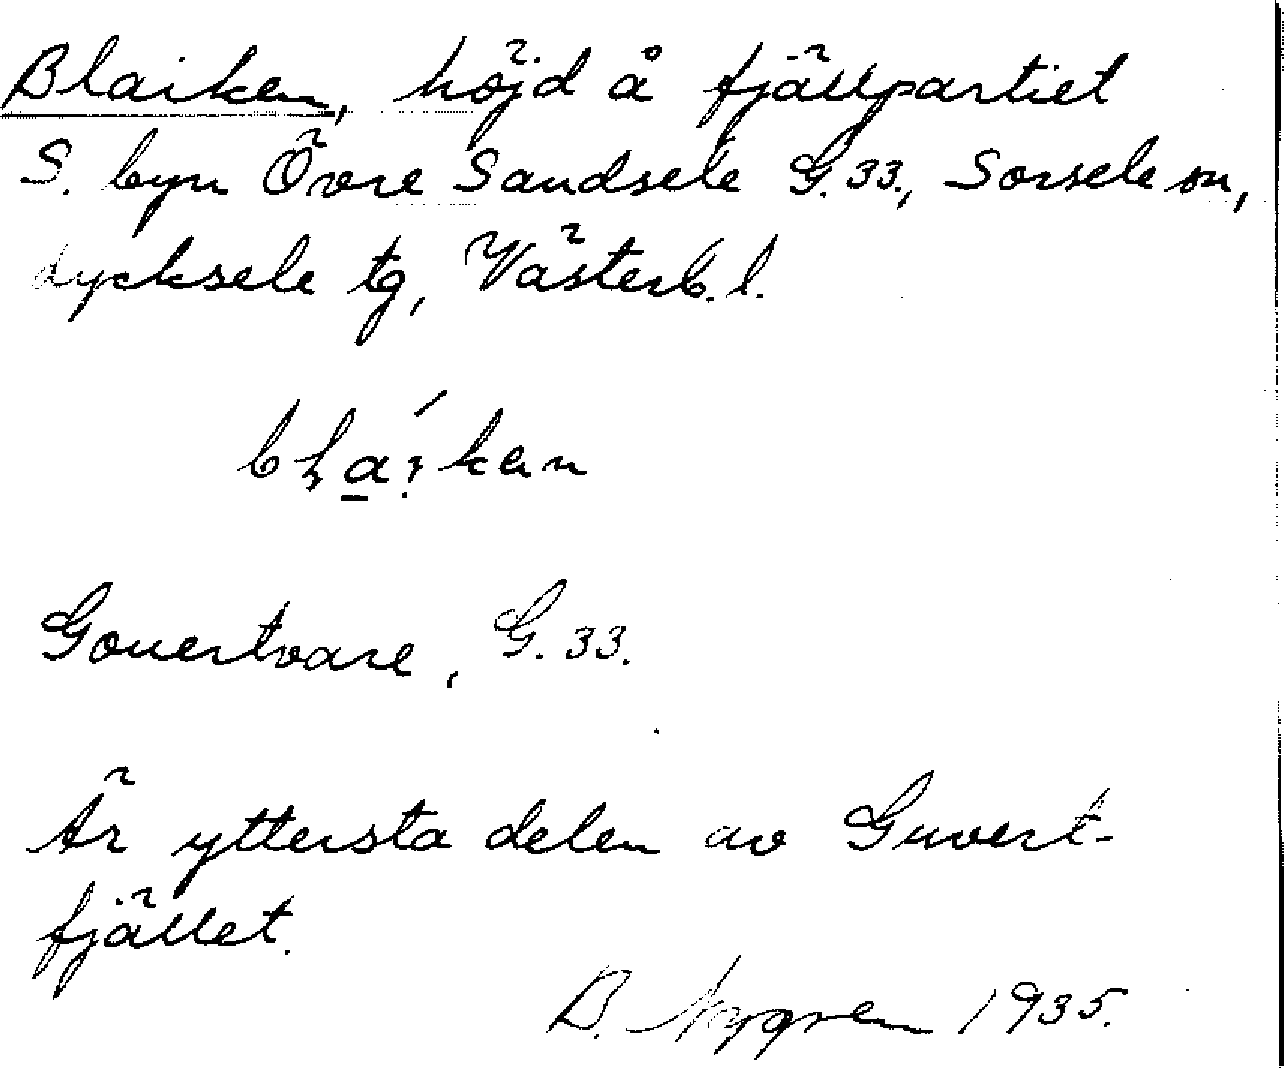 Blaiken, höjd å fjällpartiet
S. byn Övre Sandsele G.33., Sorsele sn,
Lycksele tg, Västerb. l.
Gouertvare, G. 33.
Är yttersta delen av Guvert-
fjället.
B. Nygren 1935.